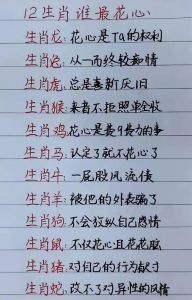 12生肖谁最花心
生肖龙:花心是TA的权利
生肖兔:从一而终较痴情
生肖虎:总是喜新厌旧
生肖猴:来者不拒照单全收
生肖鸡:花心是费9费力的事
生肖马:认定了就不花心了
生肖牛:一屁股风流债
生肖羊:被他的外表骗了
生肖狗:不会放纵自己感情
生肖鼠:不仅花心且花花肠
生肖猪:对自己的行为负寸
生肖蛇:改不了对异性的风情